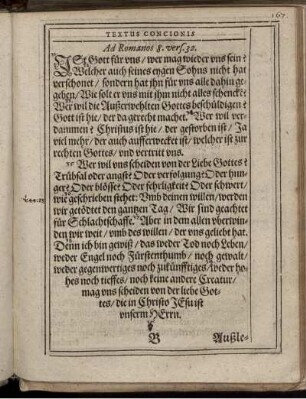 TEXTUS CONCIONIS
Ad Romanos 8. vers. 32.
ISt Gott für vns / wer mag wieder vns sein?
Welcher auch seines eygen Sohns nicht hat
verschonet / sondern hat ihn für vns alle dahin ge-
geben / Wie solt er vns mit ihm nicht alles schencken?
Wer wil die Außerwehlten Gottes beschüldigen?
Gott ist hie / der da gerecht machet. Wer wil ver-
dammen? Christus ist hie / der gestorben ist / Ja
viel mehr / der auch aufferwecket ist / welcher ist zur
rechten Gottes / vnd vertrit vns.
Wer wil vns scheiden von der Liebe Gottes?
Trübsal oder angst? Oder verfolgung? Oder hun-
ger? Oder blösse? Oder fehrligkeit? Oder schwert /
wie geschrieben stehet: Vmb deinen willen / werden
wir getödtet den gantzen Tag / Wir sind geachtet
für Schlachtschaffe. Aber in dem allen vberwin-
den wir weit / vmb des willen / der vns geliebt hat.
Denn ich bin gewiß / das weder Tod noch Leben /
weder Engel noch Fürstenthumb / noch gewalt /
weder gegenwertiges noch zukünfftiges / weder ho-
hes noch tieffes / noch keine andere Creatur /
mag vns scheiden von der liebe Got-
tes / die in Christo JEsu ist
vnserm HErrn.
B Außle-